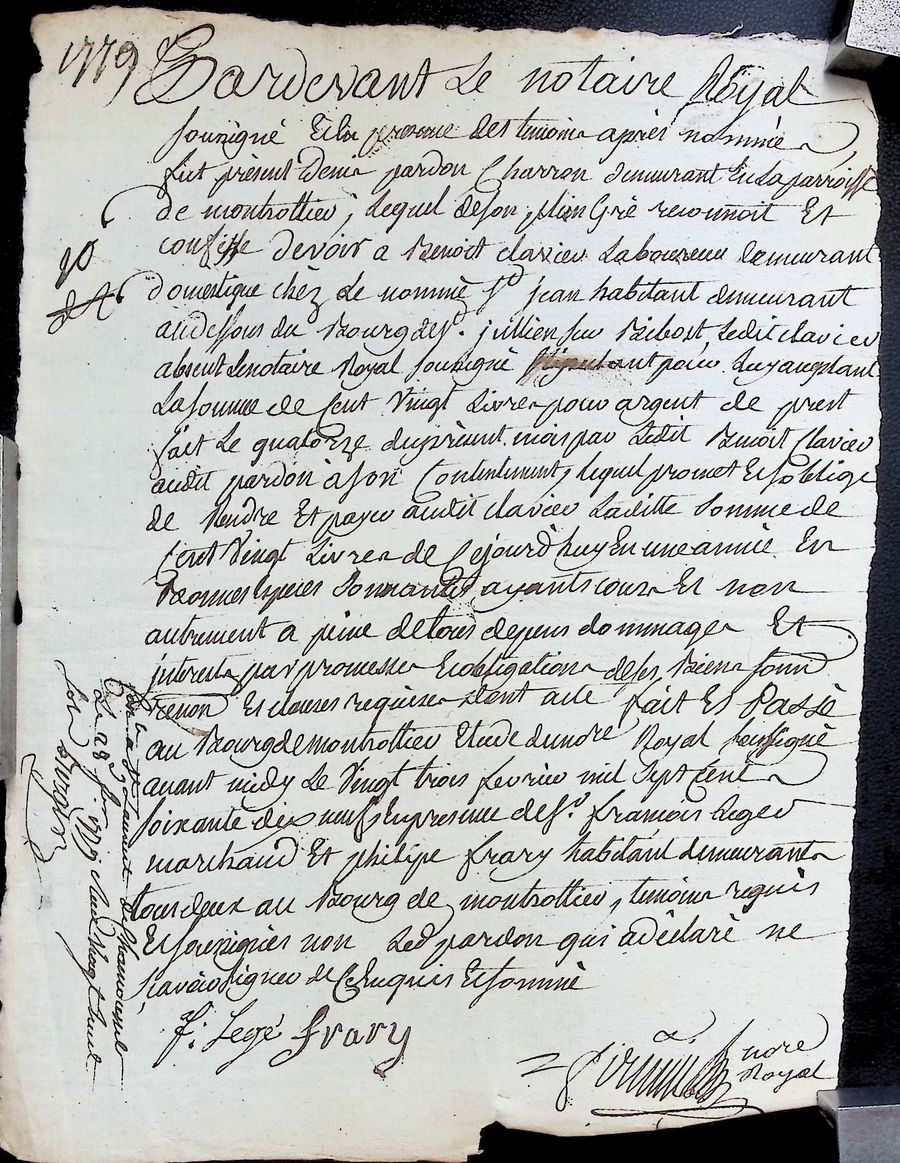 1779
Pardevant Le notaire Royal
soussigné Et En presence des temoins après nommés
fut présent Denis pardon Charron demeurant En La parroisse
de montrottier, Lequel de son plein Gré reconnoit Et
confesse devoir a Benoit clavier Laboureur demeurant
domestique chéz Le nommé Sr jean habitant demeurant
au dessous du Bourg de St. jullien sur Bibost Ledit clavier
absent Le notaire Royal soussigné stipulant pour Luy acceptant
La somme de Cent Vingt Livres pour argent de prest
fait Le quatorze du présent mois par Ledit Benoit Clavier
audit pardon à son Contentement, lequel promet Et s'oblige
de Rendre Et payer audit clavier Laditte Somme de
Cent Vingt Livres de Cejourd'huy En une année En
Bonnes Especes Sonnantes ayants cours Et non
autrement a peine de tous depens dommages Et
interests par promesses Et obligations de ses Biens soum
renon Et clauses requises Dont acte fait Et Passé
au Bourg de montrottier Etude du nore Royal soussigné
avant midy Le Vingt trois fevrier mil Sept Cent
soixante dix neuf En presence de Sr. francois Leger
marchand Et philipe frary habitant demeurants
tous deux au Bourg de montrottier, temoins requis
Et soussignés non Led pardon qui a déclaré ne
Scavoir signer de Ce Enquis Et sommé
f: Legé frary
nore
Royal
Le 28 fev. 1779 Reçu Vingt huit